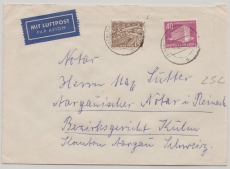 MIT LUFTPOST
PAR AVION
Notar
Herrn Max Sutter
Aargauischer Notar in Reinach
Bezirksgericht Kulm
Kanton Aargau Schweiz.